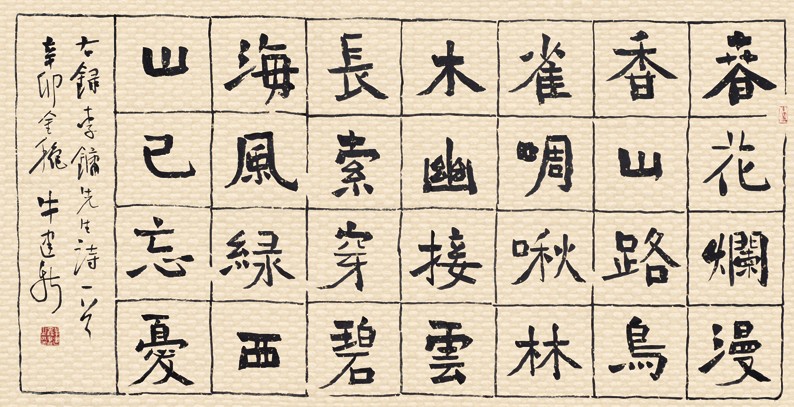 春花爛漫
香山路鳥
雀啁啾林
木幽接雲
長索穿碧
海風緑西
山已忘憂
右録李鏞先生詩一首
辛卯金穐牛建新